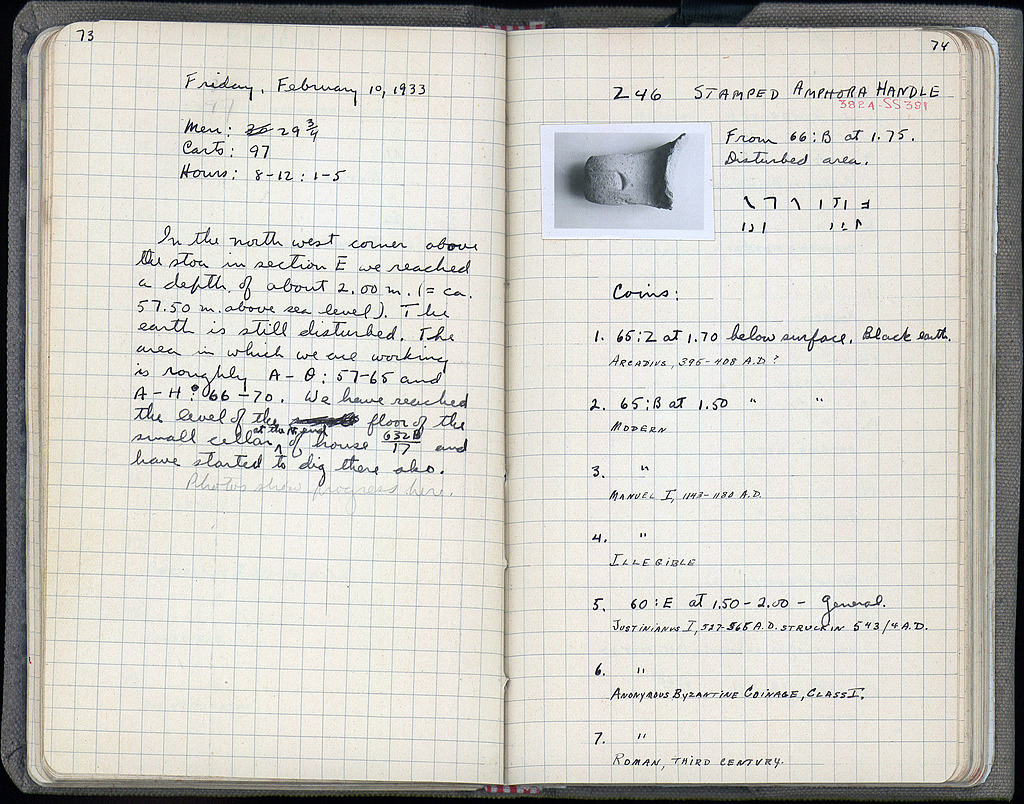 73
Friday, February 10, 1933
Men: 29 3/4
Carts: 97
Hours: 8-12 : 1-5
In the north west corner above
the stoa in section E we reached
a depth of about 2.00 m. (= ca.
57.50 m. above sea level). The
earth is still disturbed. The
area in which we are working
is roughly A - Θ : 57-65 and
A - H : 66 - 70. We have reached
the level of the floor of the
small cellar at the end of house 632B/17 and
have started to dig there also.
Photos show progress here.
74
Z 46 STAMPED AMPHORA HANDLE
3824-SS 381
From 66:B at 1.75.
Disturbed area.
Coins:
1. 65:Z at 1.70 below surface. Black earth.
ARCADIUS, 395-408 A.D.?
2. 65:B at 1.50 " "
MODERN
3. "
MANUEL I, 1143-1180 A.D.
4. "
ILLEGIBLE
5. 60:E at 1.50 - 2.00 - General.
JUSTINIANUS I, 527-565 A.D. STRUCK IN 543/4 A.D.
6. "
ANONYMOUS BYZANTINE COINAGE, CLASS I.
7. "
ROMAN, THIRD CENTURY.